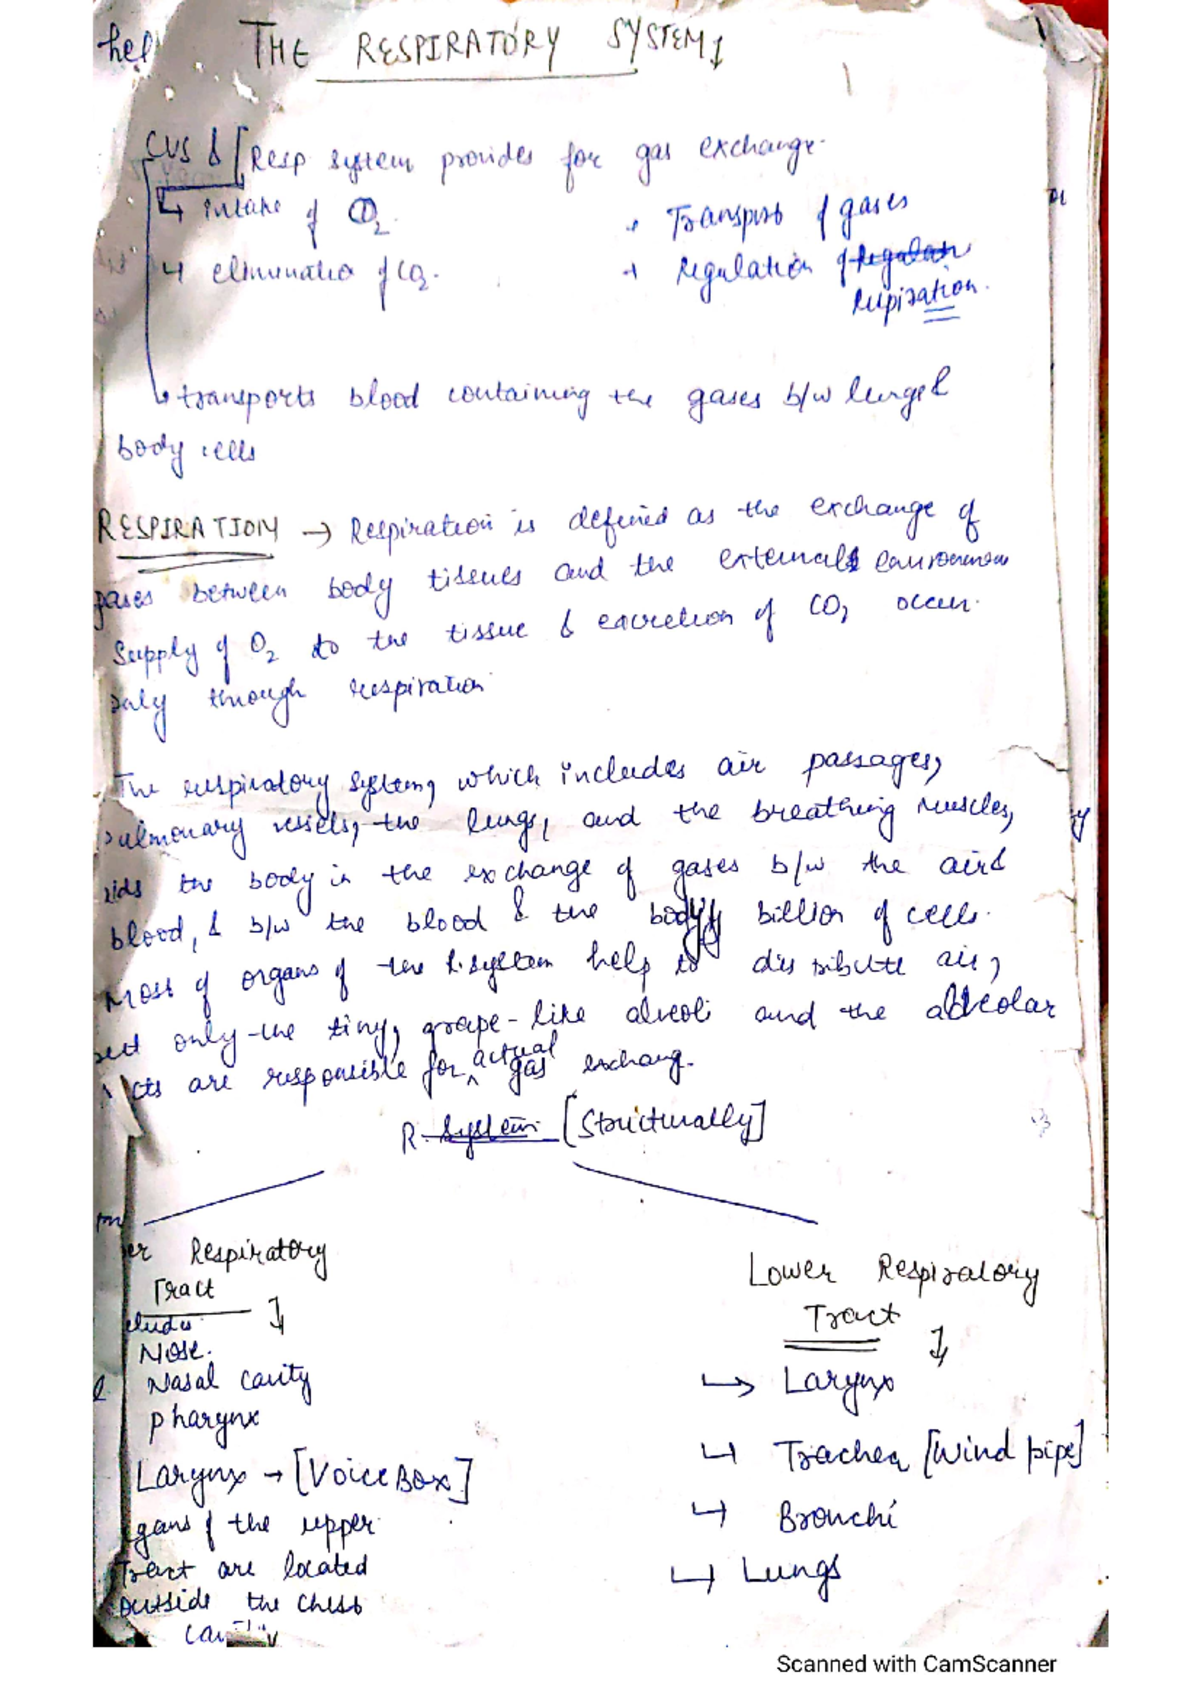 hel THE RESPIRATORY SYSTEM
CVS & [Resp system provides for gas exchange.
↳ intake of O2. • Transport of gases
↳ elimination of CO2. + Regulation of regulation
respiration.
↳ transports blood containing the gases b/w lungs &
body cells
RESPIRATION → Respiration is defined as the exchange of
gases between body tissues and the external
Supply of O2 to the tissue & excretion of CO2 occur
only through respiration
The respiratory system, which includes air passages,
pulmonary vessels, the lungs, and the breathing muscles,
aids the body in the exchange of gases b/w the air &
blood, & b/w the blood & the body's billion of cells.
Most of organs of the R. system help to distribute air,
but only the tiny, grape-like alveoli and the alveolar
ducts are responsible for actual gas exchang.
R. System [Structurally]
er Respiratory
Tract
cludes
Nose.
Nasal cavity
pharynx
Larynx → [Voice Box]
gans of the upper
Tract are located
outside the chest
cavity
Lower Respiratory
Tract
↳ Larynx
↳ Trachea [Wind pipe]
↳ Bronchi
↳ Lungs
Scanned with CamScanner